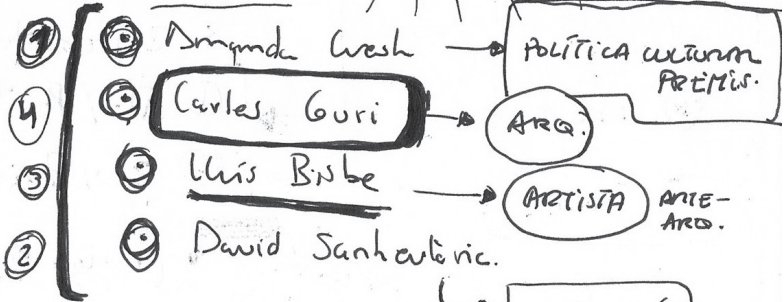 1 Amanda Cuesta → POLÍTICA CULTURAL
PREMIS.
4 Carles Guri → ARQ.
3 Lluís Bisbe → ARTISTA ARTE-
ARQ.
2 David Santaeulària.